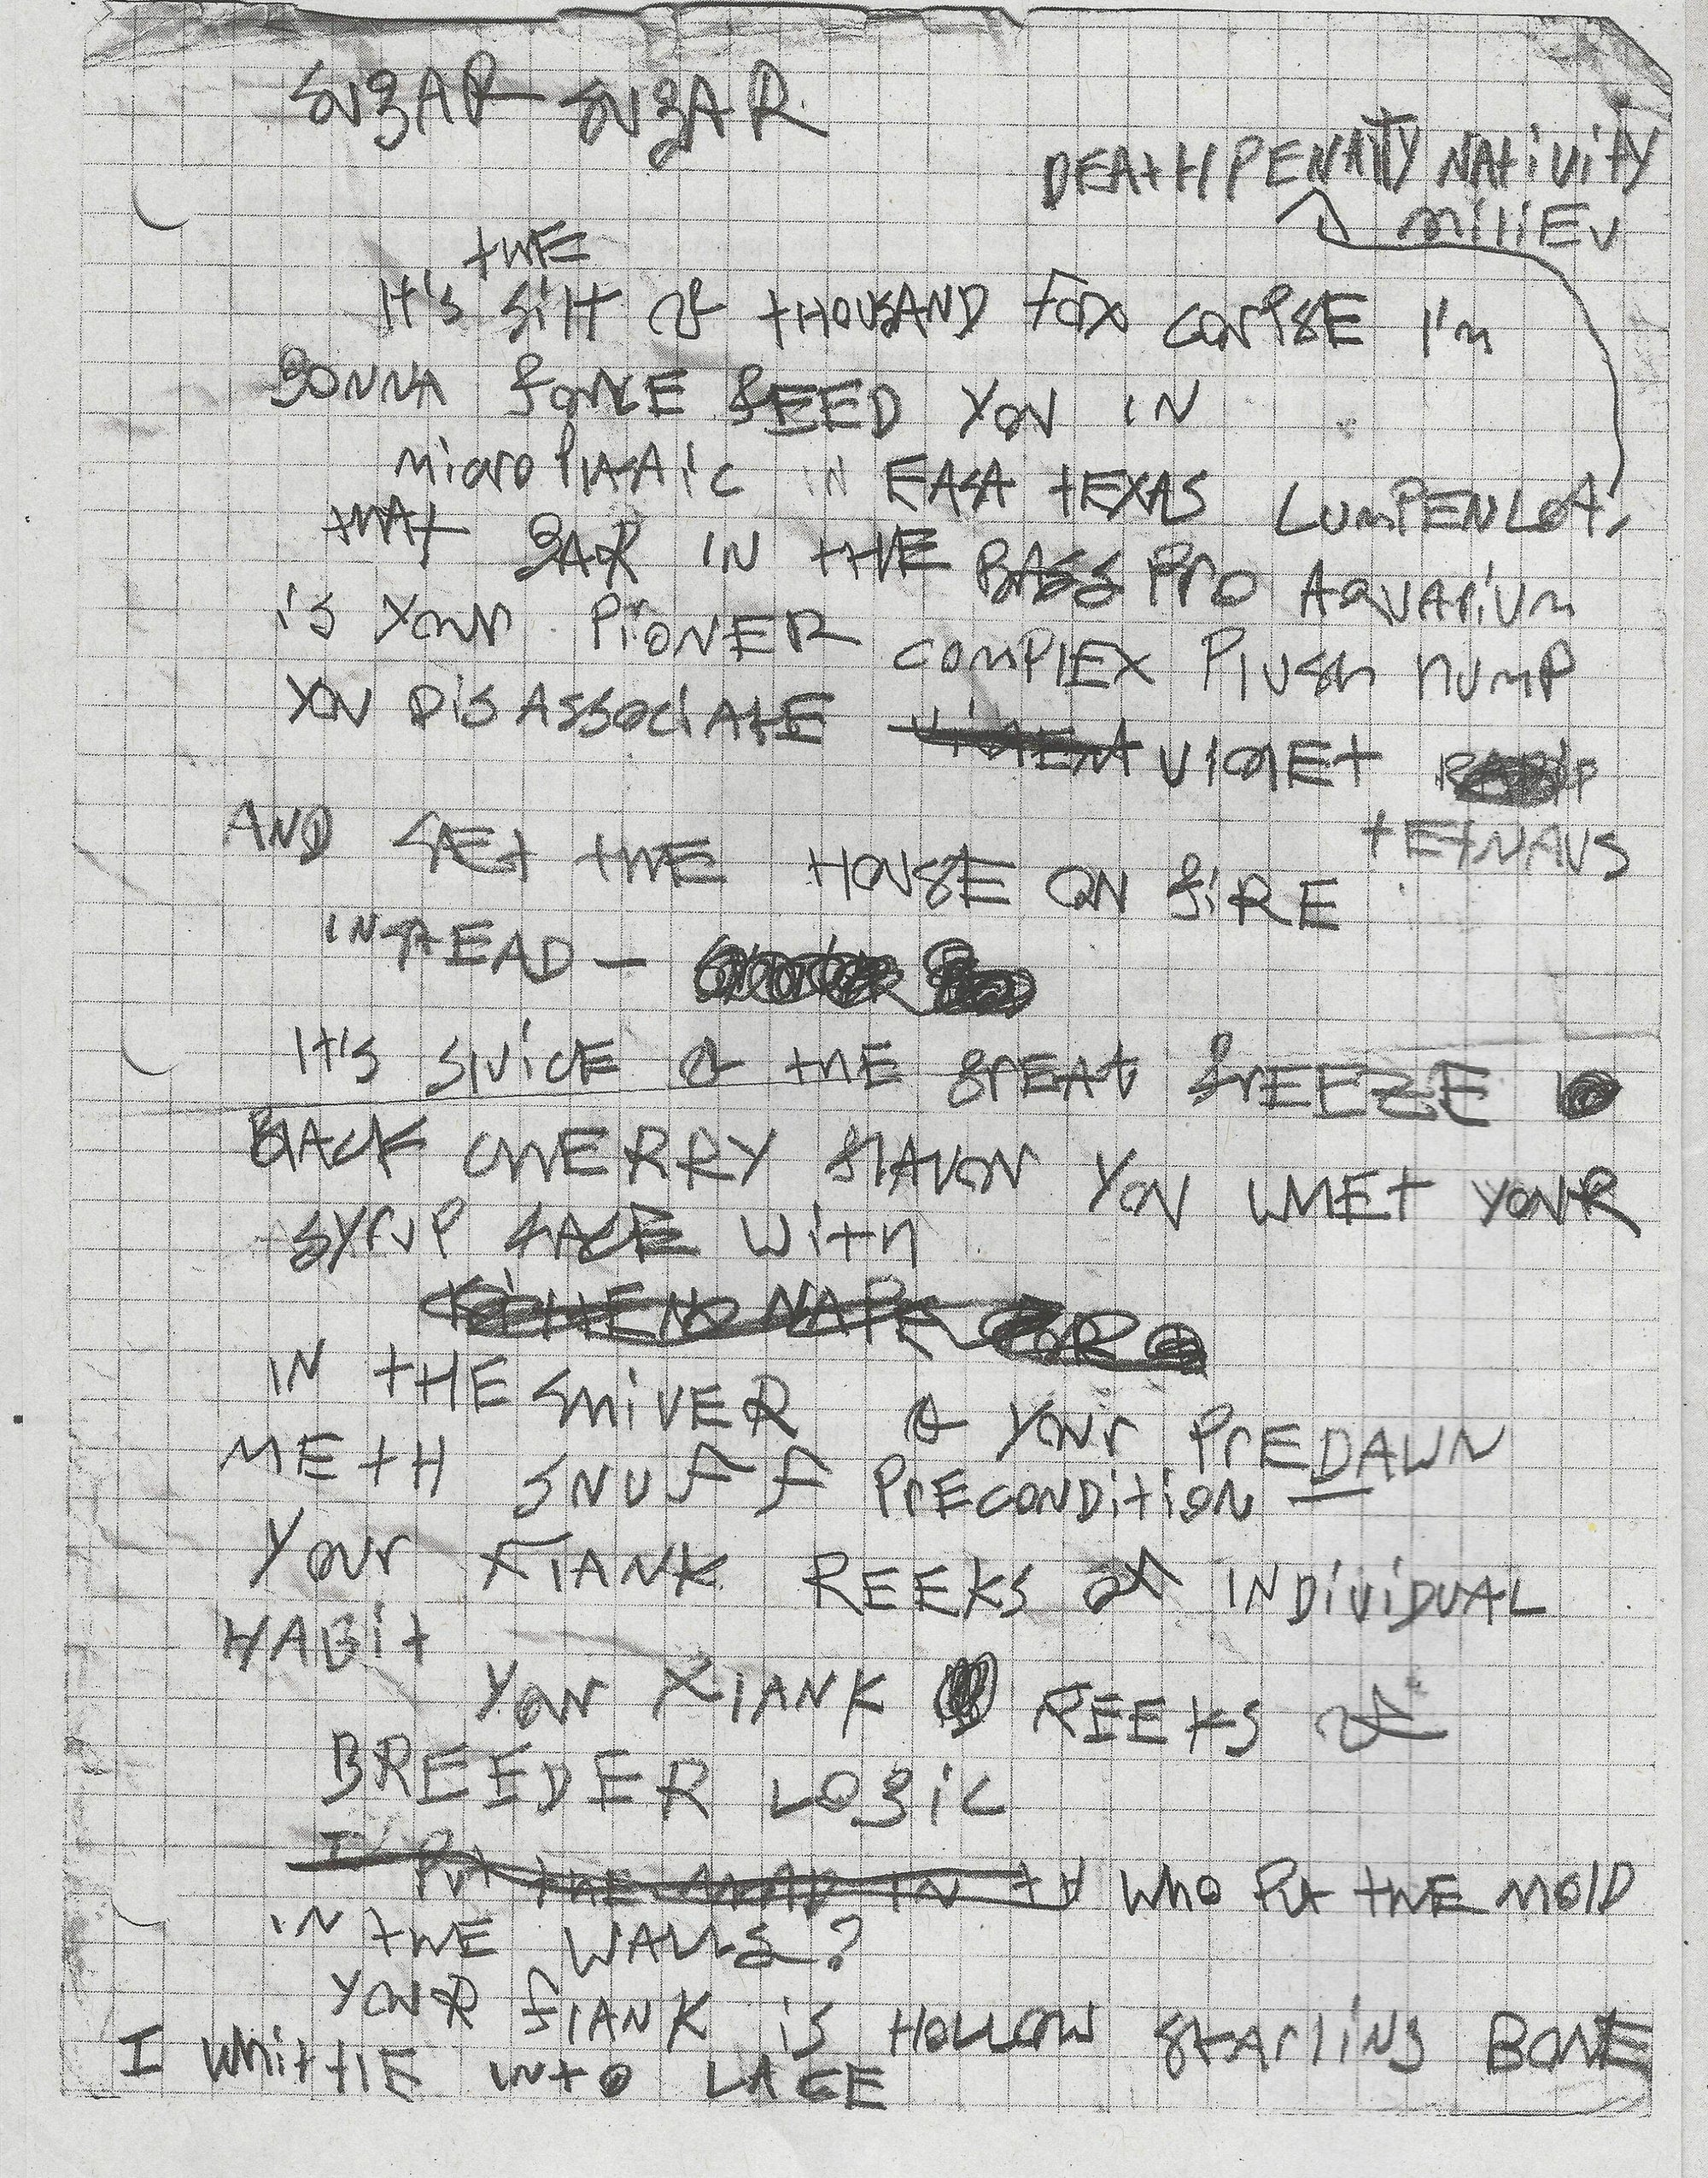 SUgAR SUgAR
DEAtH PENAlTY NAtiVitY
MiliEU
tHE
It's Silt of tHOUSAND FOX CORPSE I'm
gONNA fORCE fEED YOU IN
MicroPlAStic iN EASt tEXAS LUMPENLOt,
tHAt gAR IN tHE BASS PrO AQUAriUm
is YOUr PiONER COMPlEX PlUSh hUMP
YOU DiSASSOCiAtE ViOlEt
tEtNAUS
AND SEt tHE HOUSE ON fiRE
INStEAD —
It's SlUiCE of tHE grEAt frEEZE
BlACK CHERRY flAVOr YOU WHEt YOUR
SYrUP fACE Witn
IN tHE SHiVER of YOUr PrEDAWN
MEtH SNUFF PrECONDitiON
YOUr FlANK REEKS of INDiViDUAL
HABit
YOUr FlANK REEKS of
BREEDER LOgiC
I Put tHE MOlD IN tH WHO PUt tHE MOlD
iN tHE WALLS?
YOUR flANK iS HOLLOW StArliNg BONE
I WhittlE INtO LACE